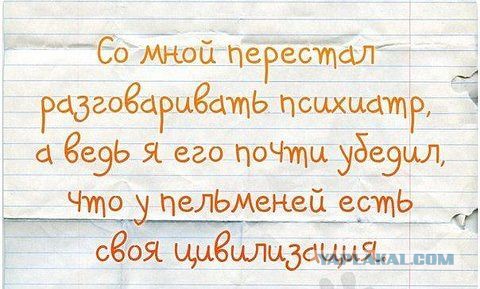 Со мной перестал
разговаривать психиатр,
а ведь я его почти убедил,
что у пельменей есть
своя цивилизация.
YAPLAKAL.COM